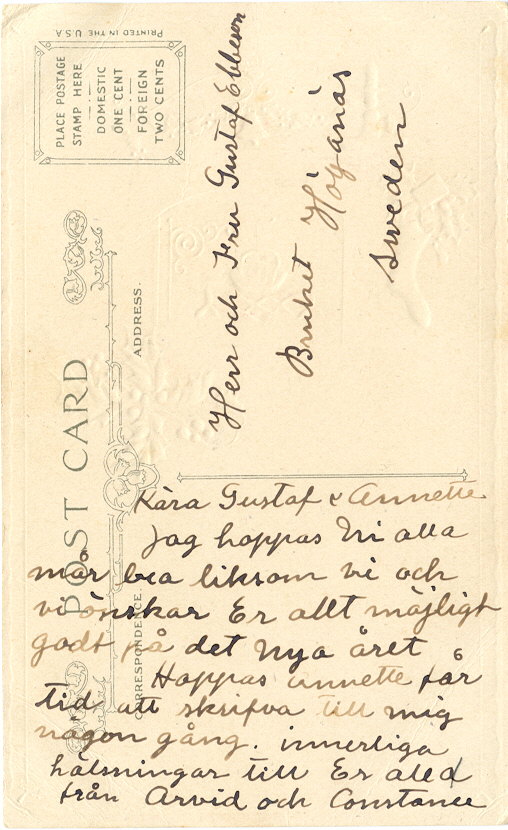 PRINTED IN THE U.S.A
PLACE POSTAGE
STAMP HERE
DOMESTIC
ONE CENT
FOREIGN
TWO CENTS
POST CARD
ADDRESS
CORRESPONDENCE.
Herr och Fru Gustaf Ebbeson
Bruket Höganäs
Sweden
Kära Gustaf & Annette
Jag hoppas Ni alla
mår bra liksom vi och
vi önskar Er allt möjligt
godt på det nya året
Hoppas Annette får
tid att skrifva till mig
någon gång. innerliga
hälsningar till Er alla
från Arvid och Constance